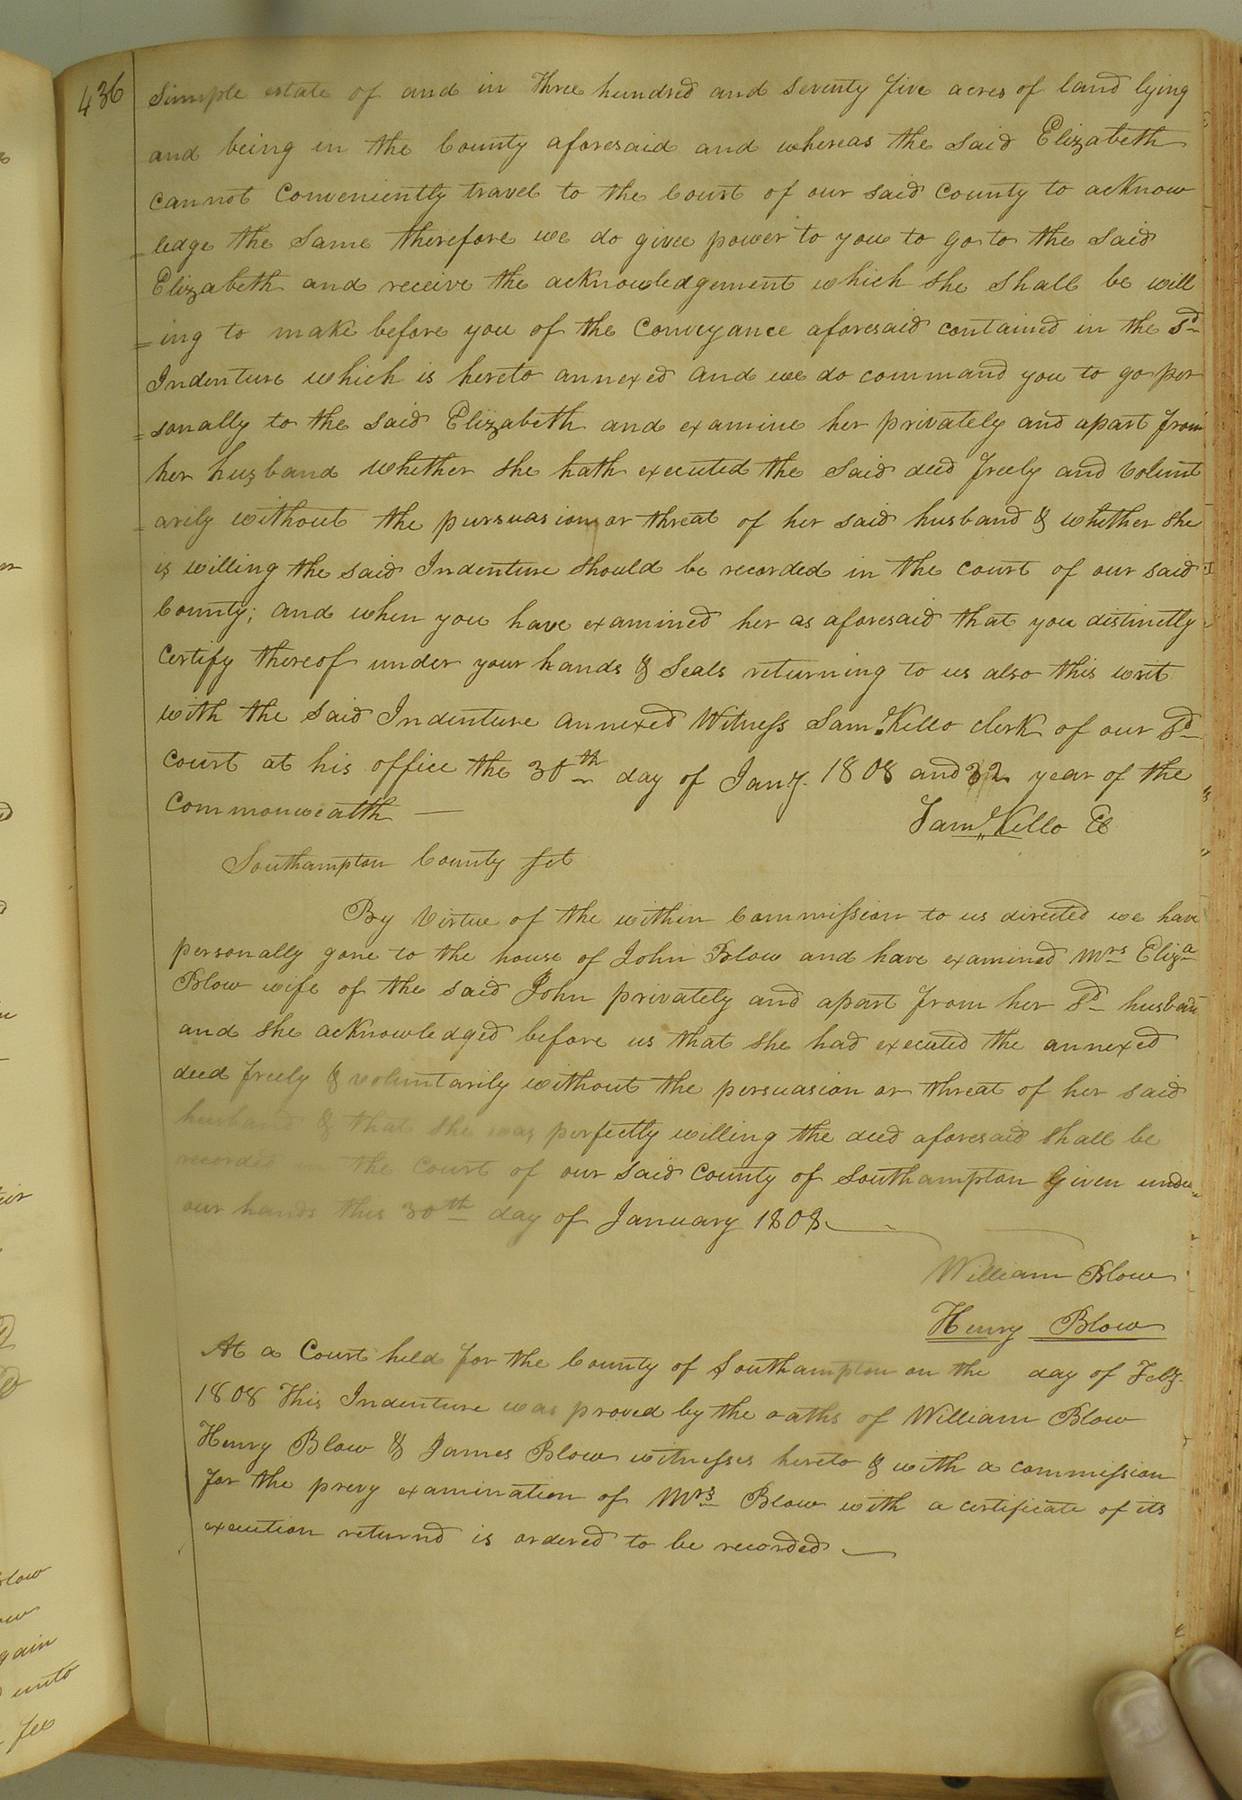 436
Simple estate of and in three hundred and seventy five acres of land lying
and being in the County aforesaid and whereas the said Elizabeth
cannot Conveniently travel to the Court of our said County to acknow
=ledge the Same therefore we do give power to you to go to the said
Elizabeth and receive the acknowledgement which she shall be will
=ing to make before you of the Conveyance aforesaid contained in the sd
Indenture which is hereto annexed and we do command you to go per
=sonally to the said Elizabeth and examine her privately and apart from
her husband whether she hath executed the said deed freely and volunt
=arily without the pursuasion or threat of her said husband & whether she
is willing the said Indenture should be recorded in the court of our said
County; and when you have examined her as aforesaid that you distinctly
Certify thereof under your hands & Seals returning to us also this writ
with the said Indenture annexed Witness Saml. Kello clerk of our sd
Court at his office the 30th day of Jany. 1808 and 32 year of the
Commonwealth —
Saml. Kello Cl
Southampton County Sct
By Virtue of the within Commission to us directed we have
personally gone to the house of John Blow and have examined Mrs Eliza
Blow wife of the said John privately and apart from her sd husband
and she acknowledged before us that she had executed the annexed
deed freely & voluntarily without the persuasion or threat of her said
husband & that she was perfectly willing the deed aforesaid shall be
recorded in the Court of our said County of Southampton Given under
our hands this 30th day of January 1808
William Blow
Henry Blow
At a Court held for the County of Southampton on the day of Feby.
1808 This Indenture was proved by the oaths of William Blow
Henry Blow & James Blow witnesses hereto & with a commission
for the privy examination of Mrs Blow with a certificate of its
execution returnd is ordered to be recorded —
blow
gain
unto
fee